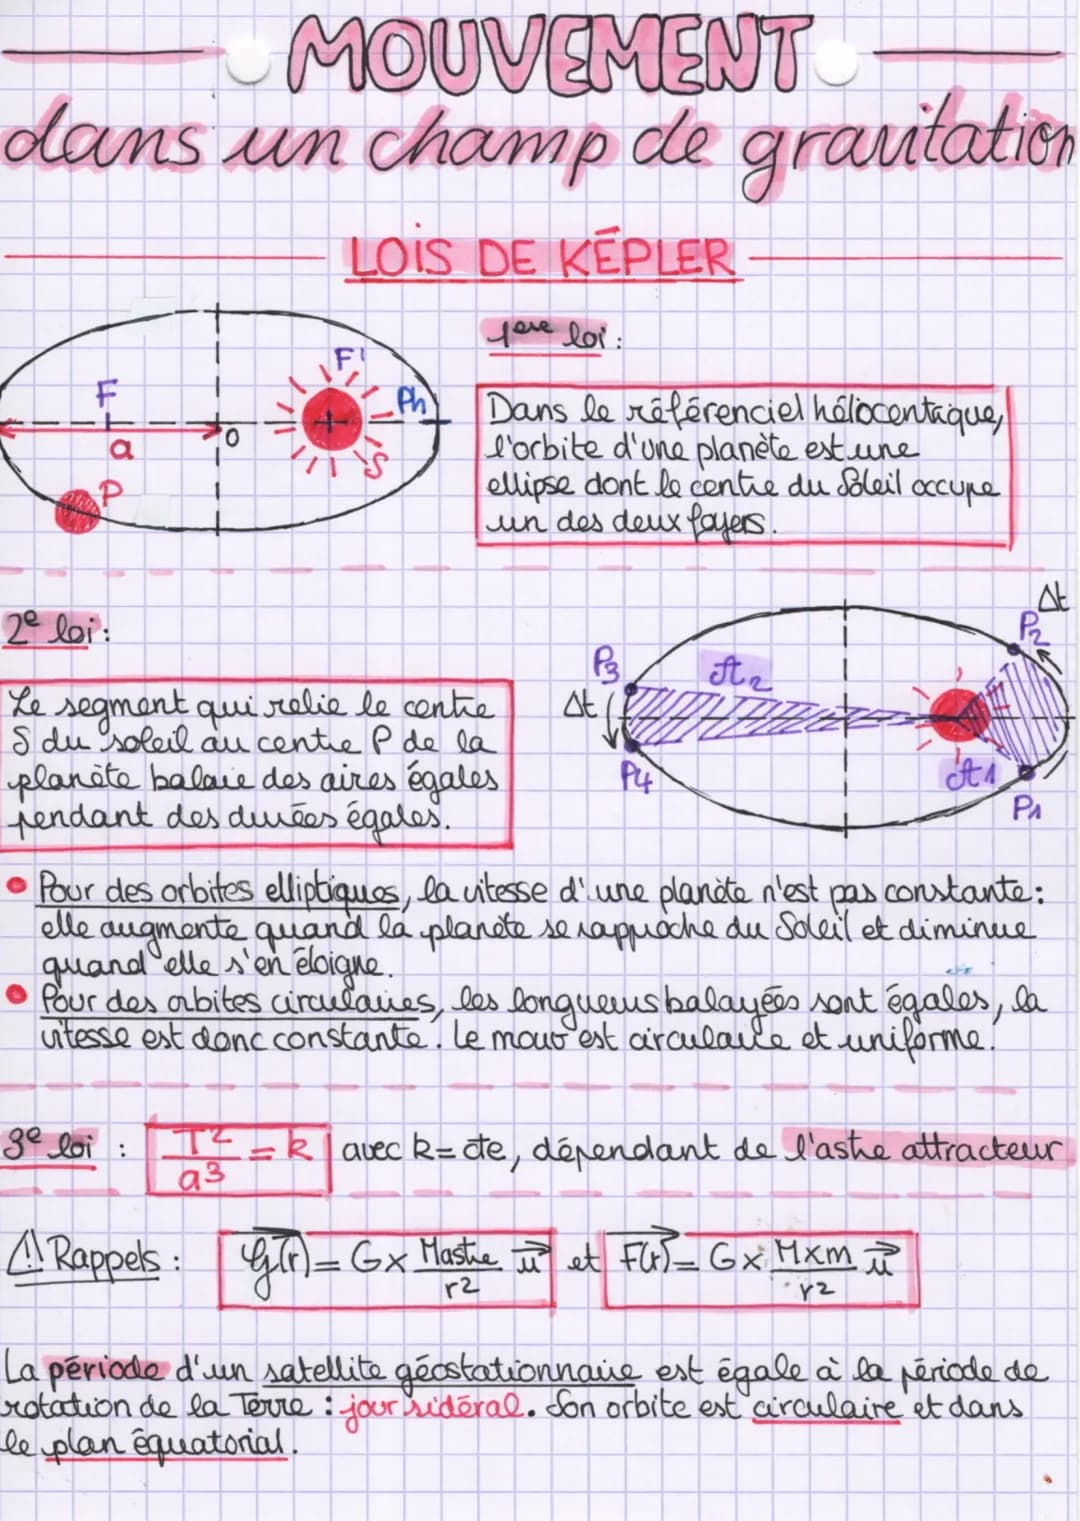 MOUVEMENT
dans un champ de gravitation
LOIS DE KÉPLER
F F' Ph
a O S
P
1ère loi :
Dans le référenciel hélocentrique,
l'orbite d'une planète est une
ellipse dont le centre du Soleil occupe
un des deux foyers.
2e loi :
Le segment qui relie le centre
S du soleil au centre P de la
planète balaie des aires égales
pendant des durées égales.
Δt
P2
P3 A2
Δt
P4 A1
P1
• Pour des orbites elliptiques, la vitesse d'une planète n'est pas constante :
elle augmente quand la planète se rapproche du Soleil et diminue
quand elle s'en éloigne.
• Pour des orbites circulaires, les longueurs balayées sont égales, la
vitesse est donc constante. Le mouv est circulaire et uniforme.
3e loi : T²/a³ = k avec k = cte, dépendant de l'astre attracteur
⚠ Rappels : G(r) = G x Mastre/r2 u et F(r) = G x Mxm/r2 u
La période d'un satellite géostationnaire est égale à la période de
rotation de la Terre : jour sidéral. Son orbite est circulaire et dans
le plan équatorial.